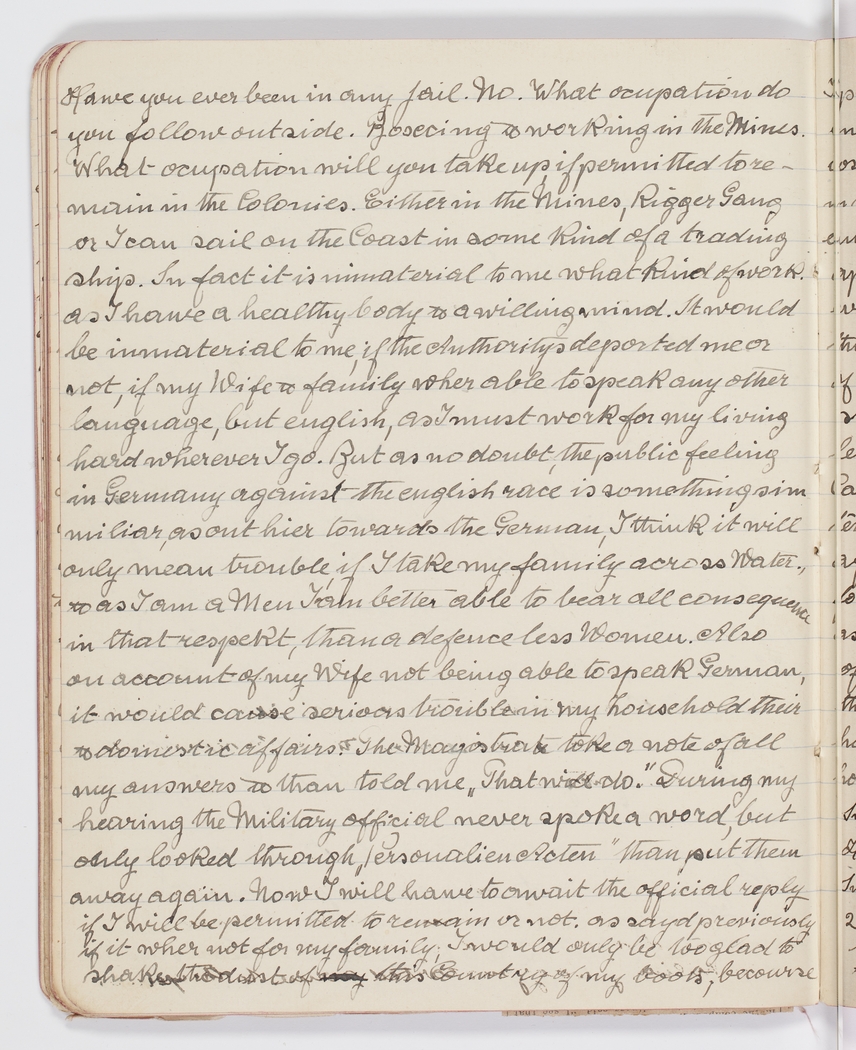 Hawe you ever been in any Jail. No. What ocupation do
you follow outside. Bosecing & working in the Mines.
What ocupation will you take up if permitted to re-
main in the Colonies. Either in the Mines, Rigger Gang
or I can sail on the Coast in some kind of a trading
ship. In fact it is inmaterial to me what kind of work.
as I hawe a healthy body & a willing mind. It would
be inmaterial to me, if the Authoritys deported me or
not, if my Wife & family wher able to speak any other
language, but english, as I must work for my living
hard wherever I go. But as no doubt, the public feeling
in Germany against the english race is something sim
miliar, as out hier towards the German, I think it will
only mean trouble, if I take my family across Water.,
& as I am a Men I am better able to bear all consequence
in that respekt, than a defence less Women. Also
on account of my Wife not being able to speak German,
it would cause serious trouble in my household their
& domestic affairs. The Magistrate take a note of all
my answers & than told me „That will do." During my
hearing the Military official never spoke a word, but
only looked through „Personalien Acten" than put them
away again. Now I will hawe to await the official reply
if I will be permitted to remain or not. as sayd previously
if it wher not for my family, I would only be to glad to
shake the dust of my this Country of my boots, becourse